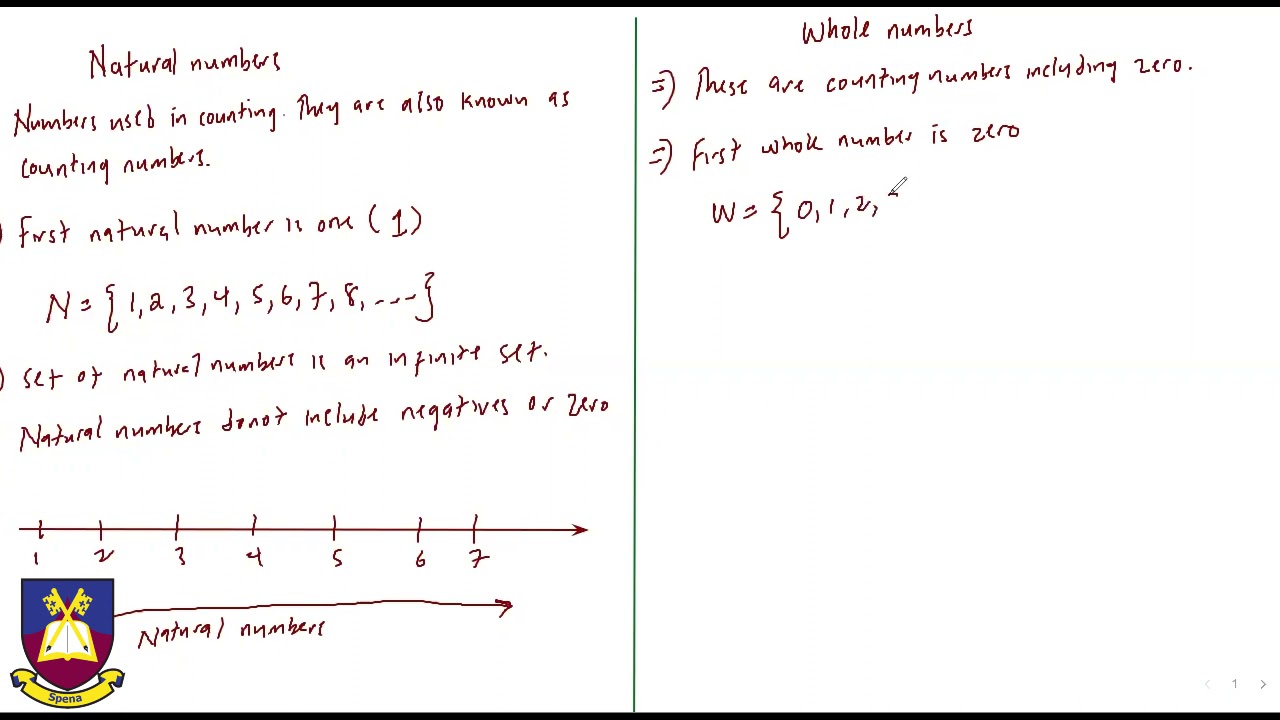 Natural numbers
Numbers used in counting. They are also known as
counting numbers.
) First natural number is one (1)
N = { 1, 2, 3, 4, 5, 6, 7, 8, ---- }
) Set of natural numbers is an infinite set.
Natural numbers donot include negatives or zero
1 2 3 4 5 6 7
Natural numbers
Spena
Whole numbers
=) These are counting numbers including zero.
=) First whole number is zero
W = { 0, 1, 2,
1